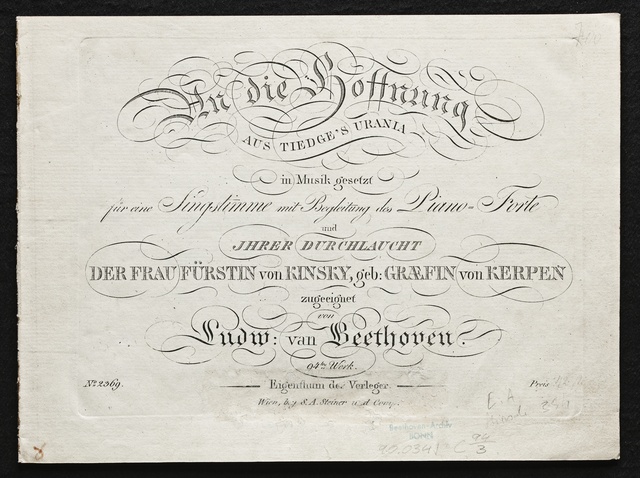 An die Hoffnung
AUS TIEDGE'S URANIA
in Musik gesetzt
für eine Singstimme mit Begleitung des Piano=Forte
und
JHRER DURCHLAUCHT
DER FRAU FÜRSTIN von KINSKY, geb: GRÆFIN von KERPEN
zugeeignet
von
Ludw: van Beethoven.
94tes Werk.
No. 2369.
Eigenthum der Verleger.
Preis
Wien, bey S. A. Steiner und Comp.
BONN
C 94/3